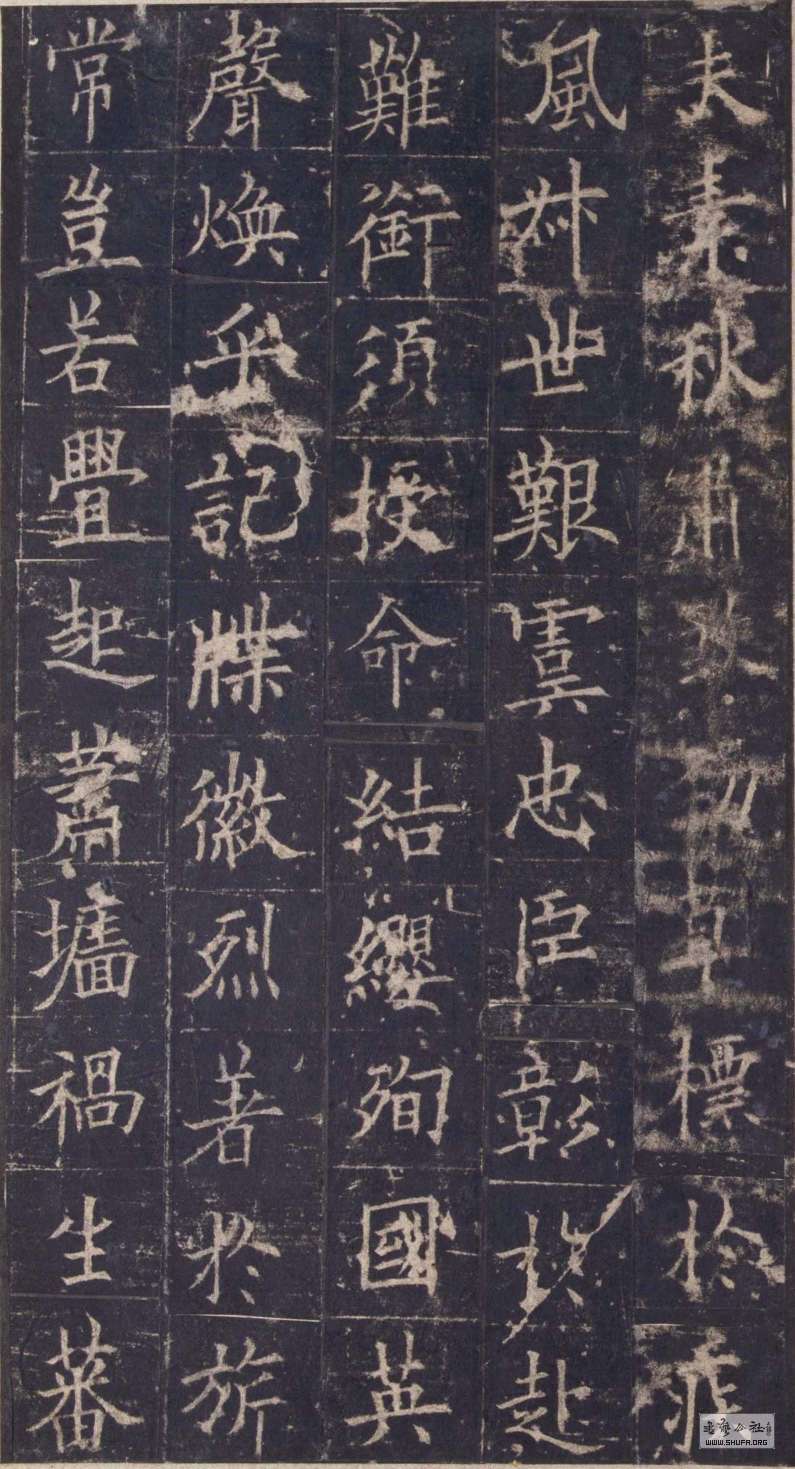 夫素秋肅標於疾
風叔世艱虞忠臣彰於赴
難銜須授命結纓殉國英
聲煥乎記牒徽烈著於旂
常豈若舋起蕭墻禍生蕃
書藝公社
WWW.SHUFA.ORG